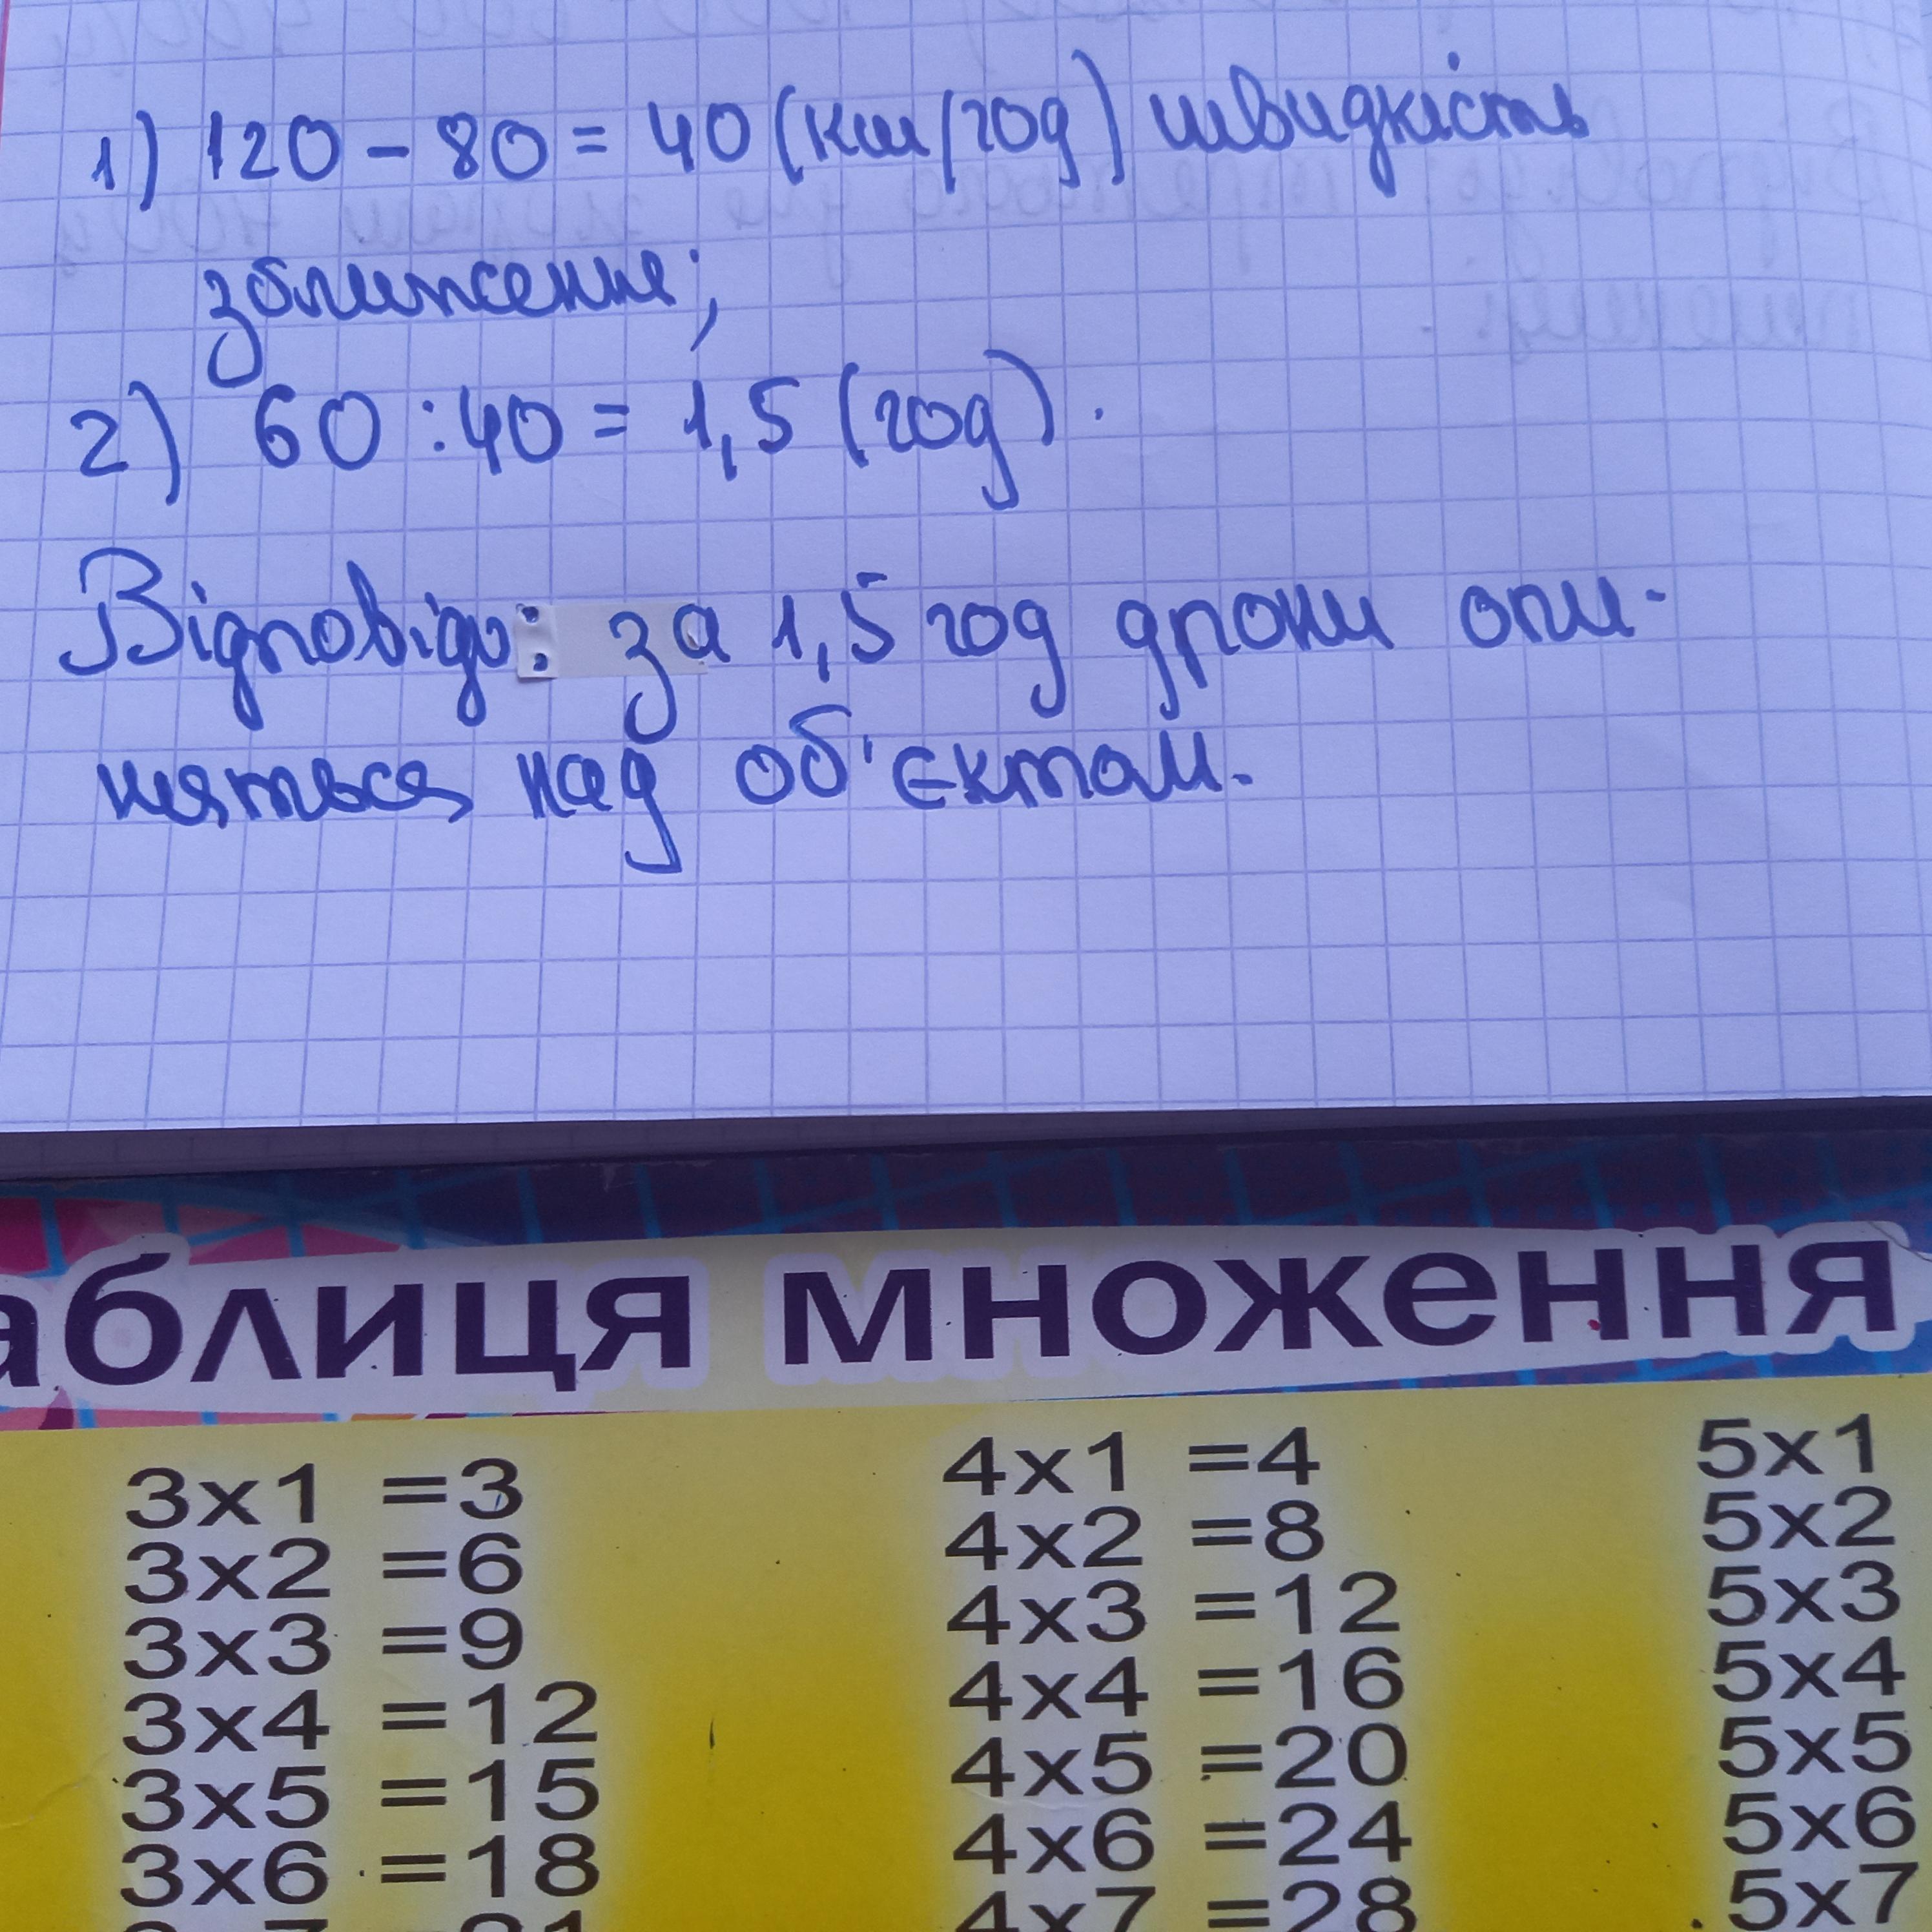 1) 120 - 80 = 40 (км/год) швидкість
зближення;
2) 60 : 40 = 1,5 (год).
Відповідь: за 1,5 год дрони опи-
няться над об'єктом.
аблиця множення
3x1 =3 4x1 =4 5x1
3x2 =6 4x2 =8 5x2
3x3 =9 4x3 =12 5x3
3x4 =12 4x4 =16 5x4
3x5 =15 4x5 =20 5x5
3x6 =18 4x6 =24 5x6
4x7 =28 5x7